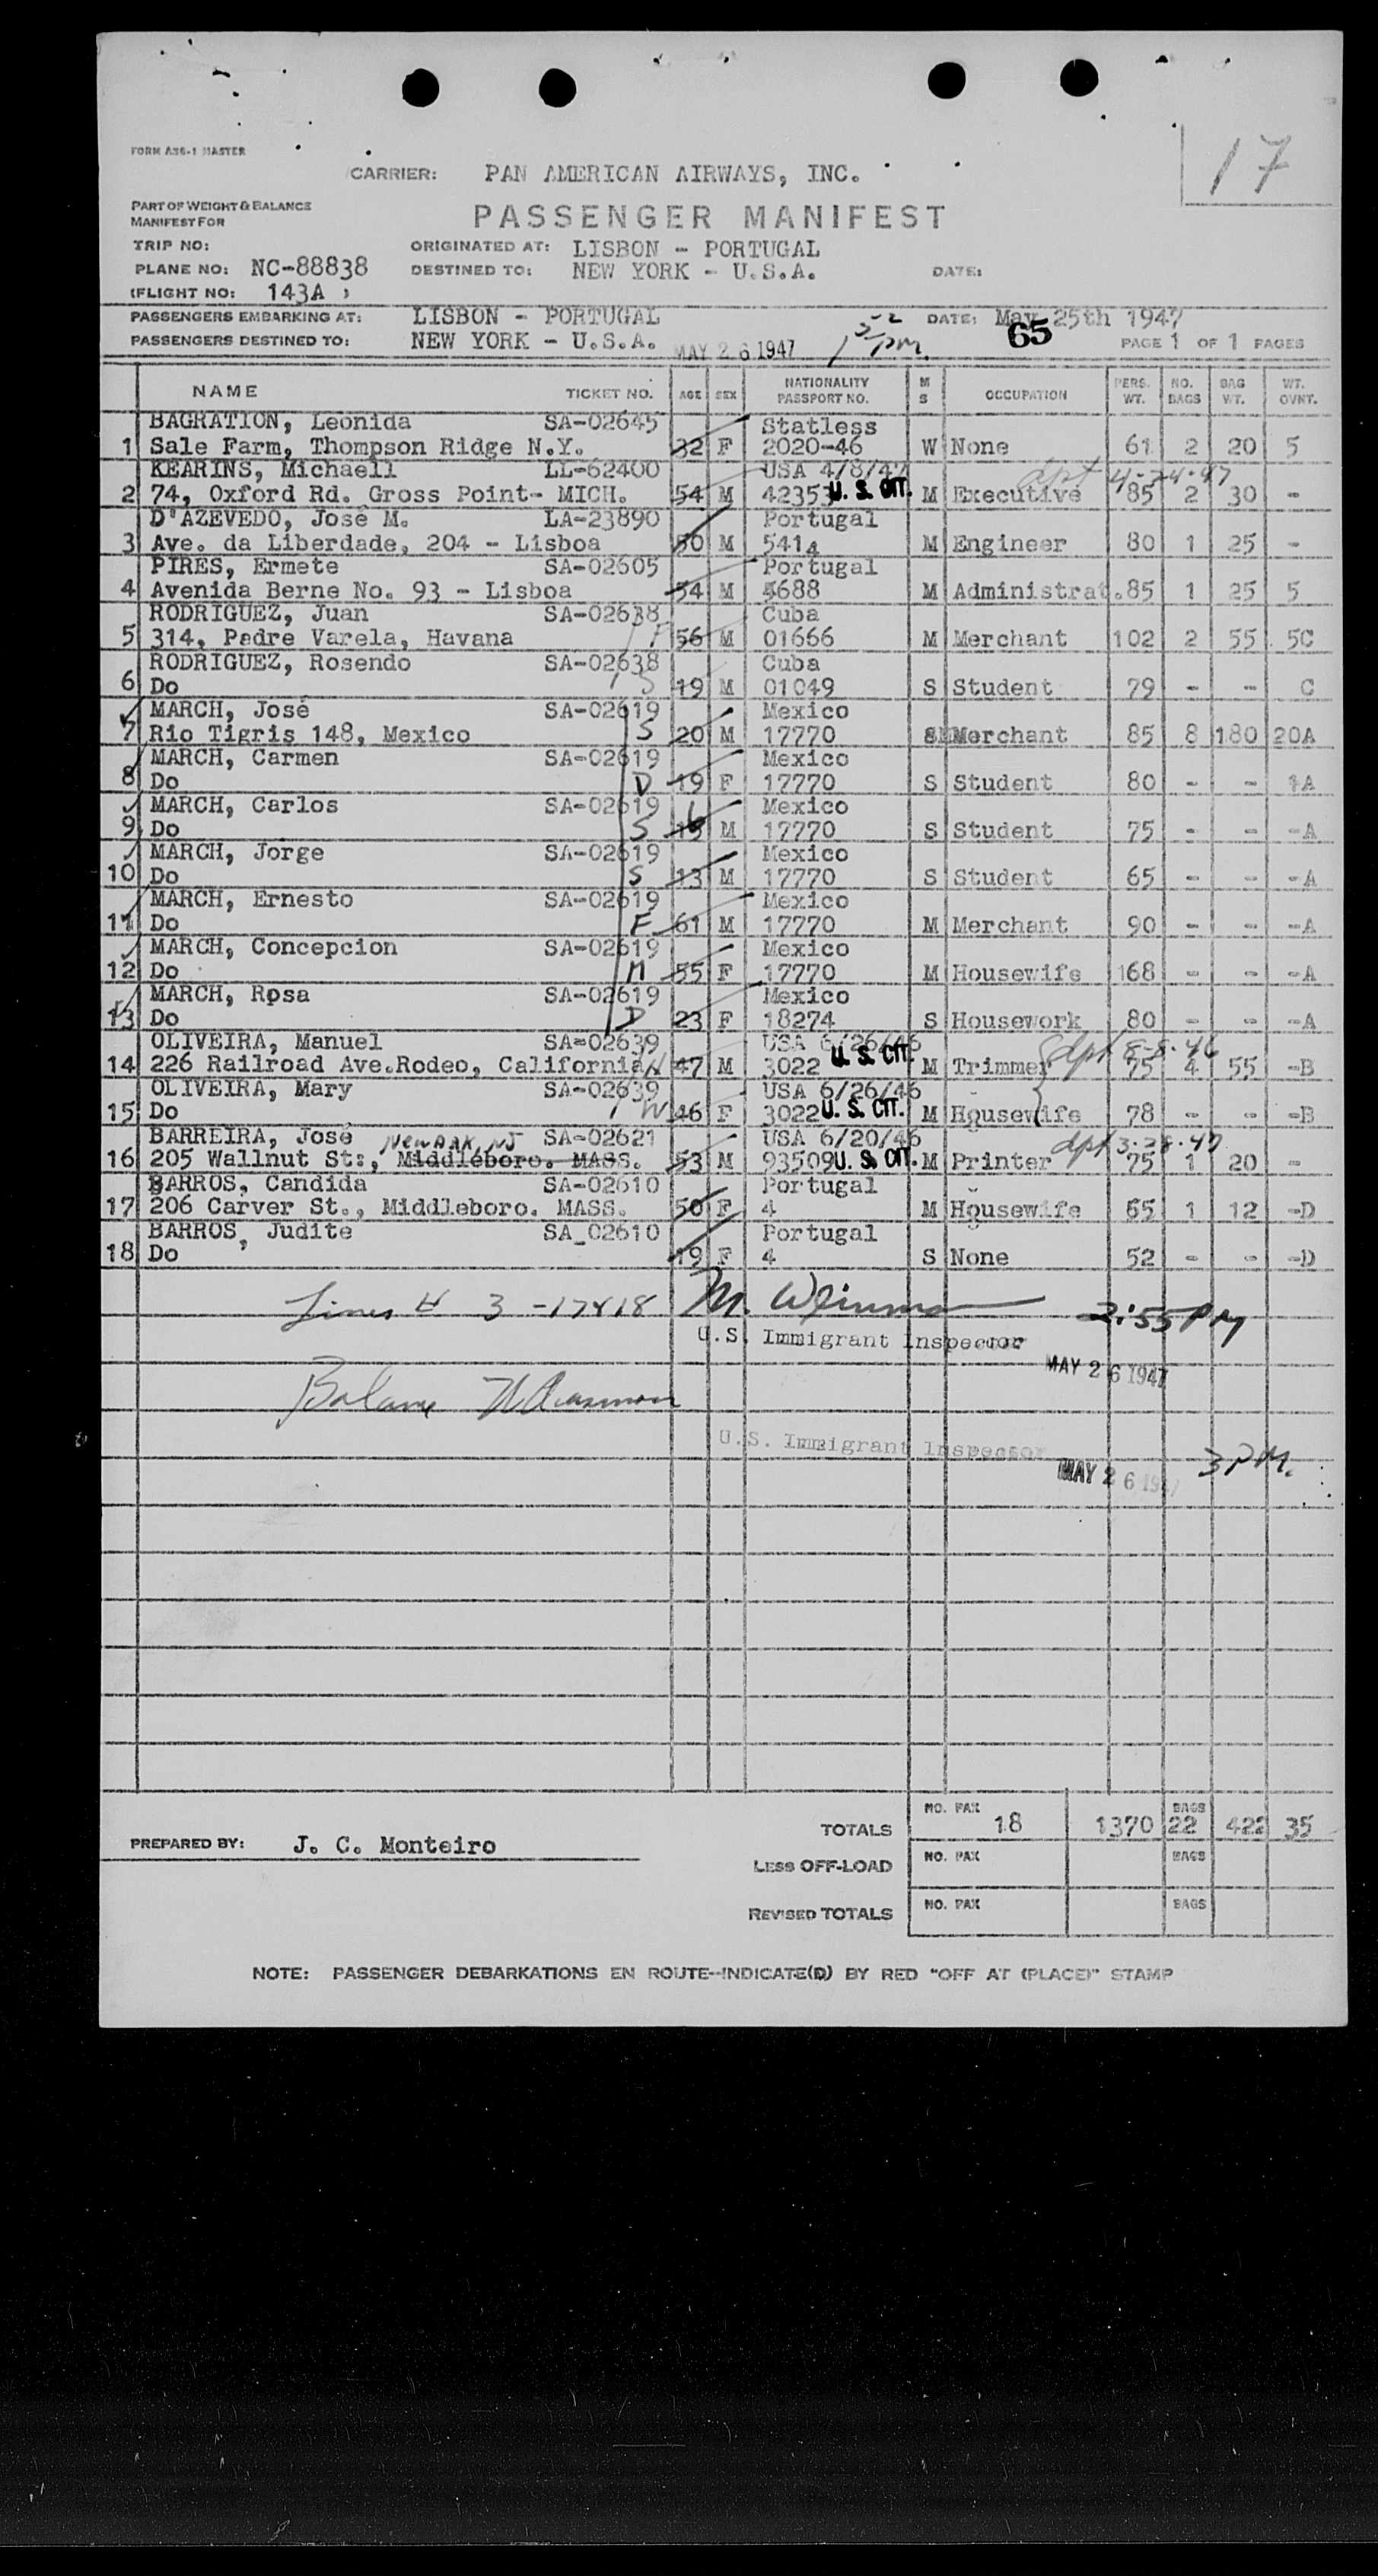 17
FORM A36-1 MASTER
CARRIER: PAN AMERICAN AIRWAYS, INC.
PART OF WEIGHT & BALANCE
MANIFEST FOR
PASSENGER MANIFEST
TRIP NO: ORIGINATED AT: LISBON - PORTUGAL
PLANE NO: NC-88838 DESTINED TO: NEW YORK - U.S.A. DATE:
(FLIGHT NO: 143A )
PASSENGERS EMBARKING AT: LISBON - PORTUGAL DATE: May 25th 1947
PASSENGERS DESTINED TO: NEW YORK - U.S.A. MAY 26 1947 PM. 65 PAGE 1 OF 1 PAGES
NAME TICKET NO. AGE SEX NATIONALITY PASSPORT NO. M S OCCUPATION PERS. WT. NO. BAGS BAG WT. WT. OVNT.
BAGRATION, Leonida SA-02645 Statless
1 Sale Farm, Thompson Ridge N.Y. 32 F 2020-46 W None 61 2 20 5
KEARINS, Michaell LL-62400 USA 4/8/47 dpt 4-24-47
2 74, Oxford Rd. Gross Point- MICH. 54 M 42353 U. S. CIT. M Executive 85 2 30 -
D'AZEVEDO, José M. LA-23890 Portugal
3 Ave. da Liberdade, 204 - Lisboa 50 M 5414 M Engineer 80 1 25 -
PIRES, Ermete SA-02605 Portugal
4 Avenida Berne No. 93 - Lisboa 54 M 4688 M Administrat. 85 1 25 5
RODRIGUEZ, Juan SA-02638 Cuba
5 314, Padre Varela, Havana F 56 M 01666 M Merchant 102 2 55 5C
RODRIGUEZ, Rosendo SA-02638 Cuba
6 Do S 19 M 01049 S Student 79 - - C
MARCH, José SA-02619 Mexico
7 Rio Tigris 148, Mexico S 20 M 17770 Merchant 85 8 180 20A
MARCH, Carmen SA-02619 Mexico
8 Do D 19 F 17770 S Student 80 - - A
MARCH, Carlos SA-02619 Mexico
9 Do S M 17770 S Student 75 - - -A
MARCH, Jorge SA-02619 Mexico
10 Do S 13 M 17770 S Student 65 - - -A
MARCH, Ernesto SA-02619 Mexico
11 Do F 61 M 17770 M Merchant 90 - - -A
MARCH, Concepcion SA-02619 Mexico
12 Do M 55 F 17770 M Housewife 168 - - -A
MARCH, Rosa SA-02619 Mexico
13 Do D 23 F 18274 S Housework 80 - - -A
OLIVEIRA, Manuel SA-02639 USA 6/26/46 dpt 8-8-46
14 226 Railroad Ave.Rodeo, California H 47 M 3022 U. S. CIT. M Trimmer 75 4 55 -B
OLIVEIRA, Mary SA-02639 USA 6/26/46
15 Do W 46 F 3022 U. S. CIT. M Housewife 78 - - -B
BARREIRA, José Newark, NJ SA-02621 USA 6/20/46 dpt 3-28-47
16 205 Wallnut St:, Middleboro. MASS. 53 M 93509 U. S. CIT. M Printer 75 1 20 -
BARROS, Candida SA-02610 Portugal
17 206 Carver St., Middleboro. MASS. 50 F 4 M Housewife 65 1 12 -D
BARROS, Judite SA_02610 Portugal
18 Do 19 F 4 S None 52 - - -D
Lines # 3 -17 & 18 2:55 PM
U.S. Immigrant Inspector
MAY 26 1947
Balance
U.S. Immigrant Inspector
MAY 26 1947 3 PM.
TOTALS NO. PAX 18 1370 BAGS 22 422 35
PREPARED BY: J. C. Monteiro
LESS OFF-LOAD NO. PAX BAGS
REVISED TOTALS NO. PAX BAGS
NOTE: PASSENGER DEBARKATIONS EN ROUTE--INDICATE(D) BY RED "OFF AT (PLACE)" STAMP